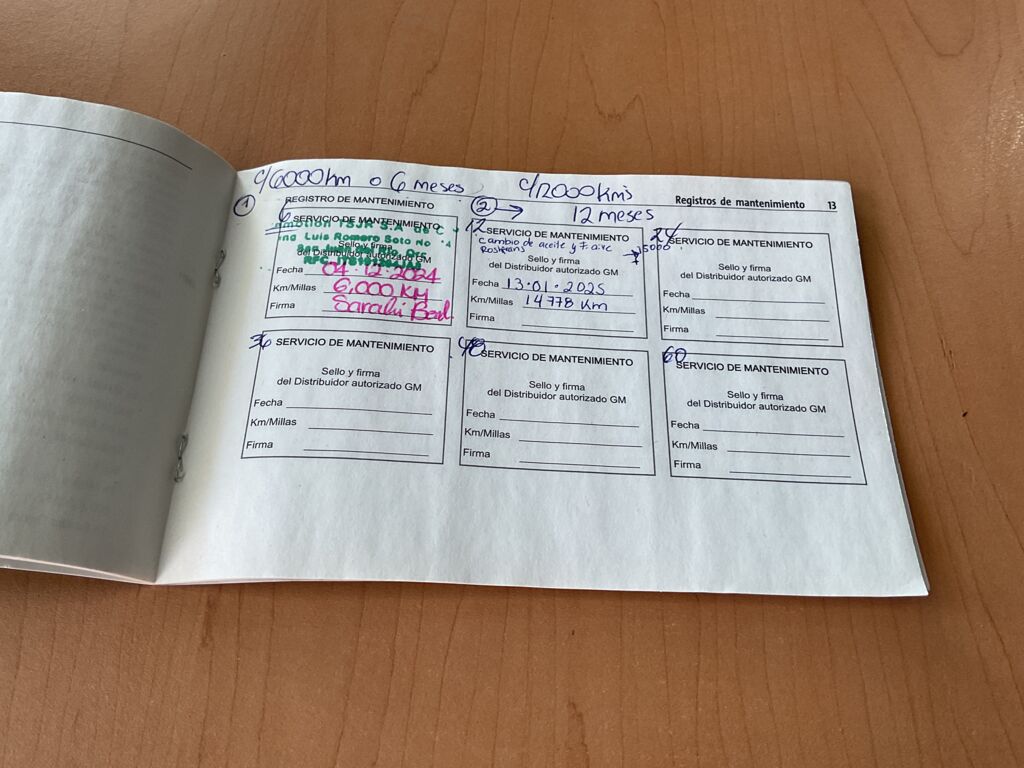 c/6000 km o 6 meses
c/12000 Km's
Registros de mantenimiento 13
① REGISTRO DE MANTENIMIENTO
② → 12 meses
6 SERVICIO DE MANTENIMIENTO
S.A de C
Luis Romero Soto No
San Juan del Río, Qro.
Sello y firma
del Distribuidor autorizado GM
Fecha 04·12·2024
Km/Millas 6,000 KM
Firma Sarahi
12 SERVICIO DE MANTENIMIENTO
cambio de aceite y F. aire
Sello y firma
del Distribuidor autorizado GM
Fecha 13·01·2025
Km/Millas 14778 Km
Firma
24 SERVICIO DE MANTENIMIENTO
Sello y firma
del Distribuidor autorizado GM
Fecha
Km/Millas
Firma
36 SERVICIO DE MANTENIMIENTO
Sello y firma
del Distribuidor autorizado GM
Fecha
Km/Millas
Firma
48 SERVICIO DE MANTENIMIENTO
Sello y firma
del Distribuidor autorizado GM
Fecha
Km/Millas
Firma
60 SERVICIO DE MANTENIMIENTO
Sello y firma
del Distribuidor autorizado GM
Fecha
Km/Millas
Firma